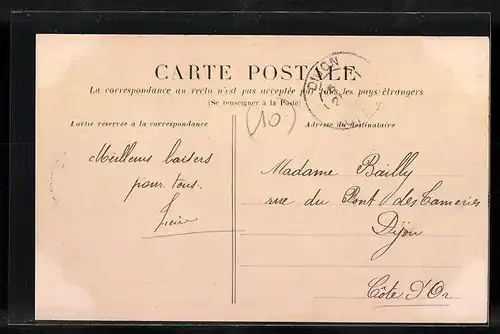 CARTE POSTALE
La correspondance au recto n'est pas acceptée par tous les pays étrangers
(Se renseigner à la Poste)
Partie réservée à la correspondance
Adresse du destinataire
DIJON
(10)
Meilleurs baisers
pour tous.
Madame Bailly
rue du Pont des Tanneries
Dijon
Côte d'Or